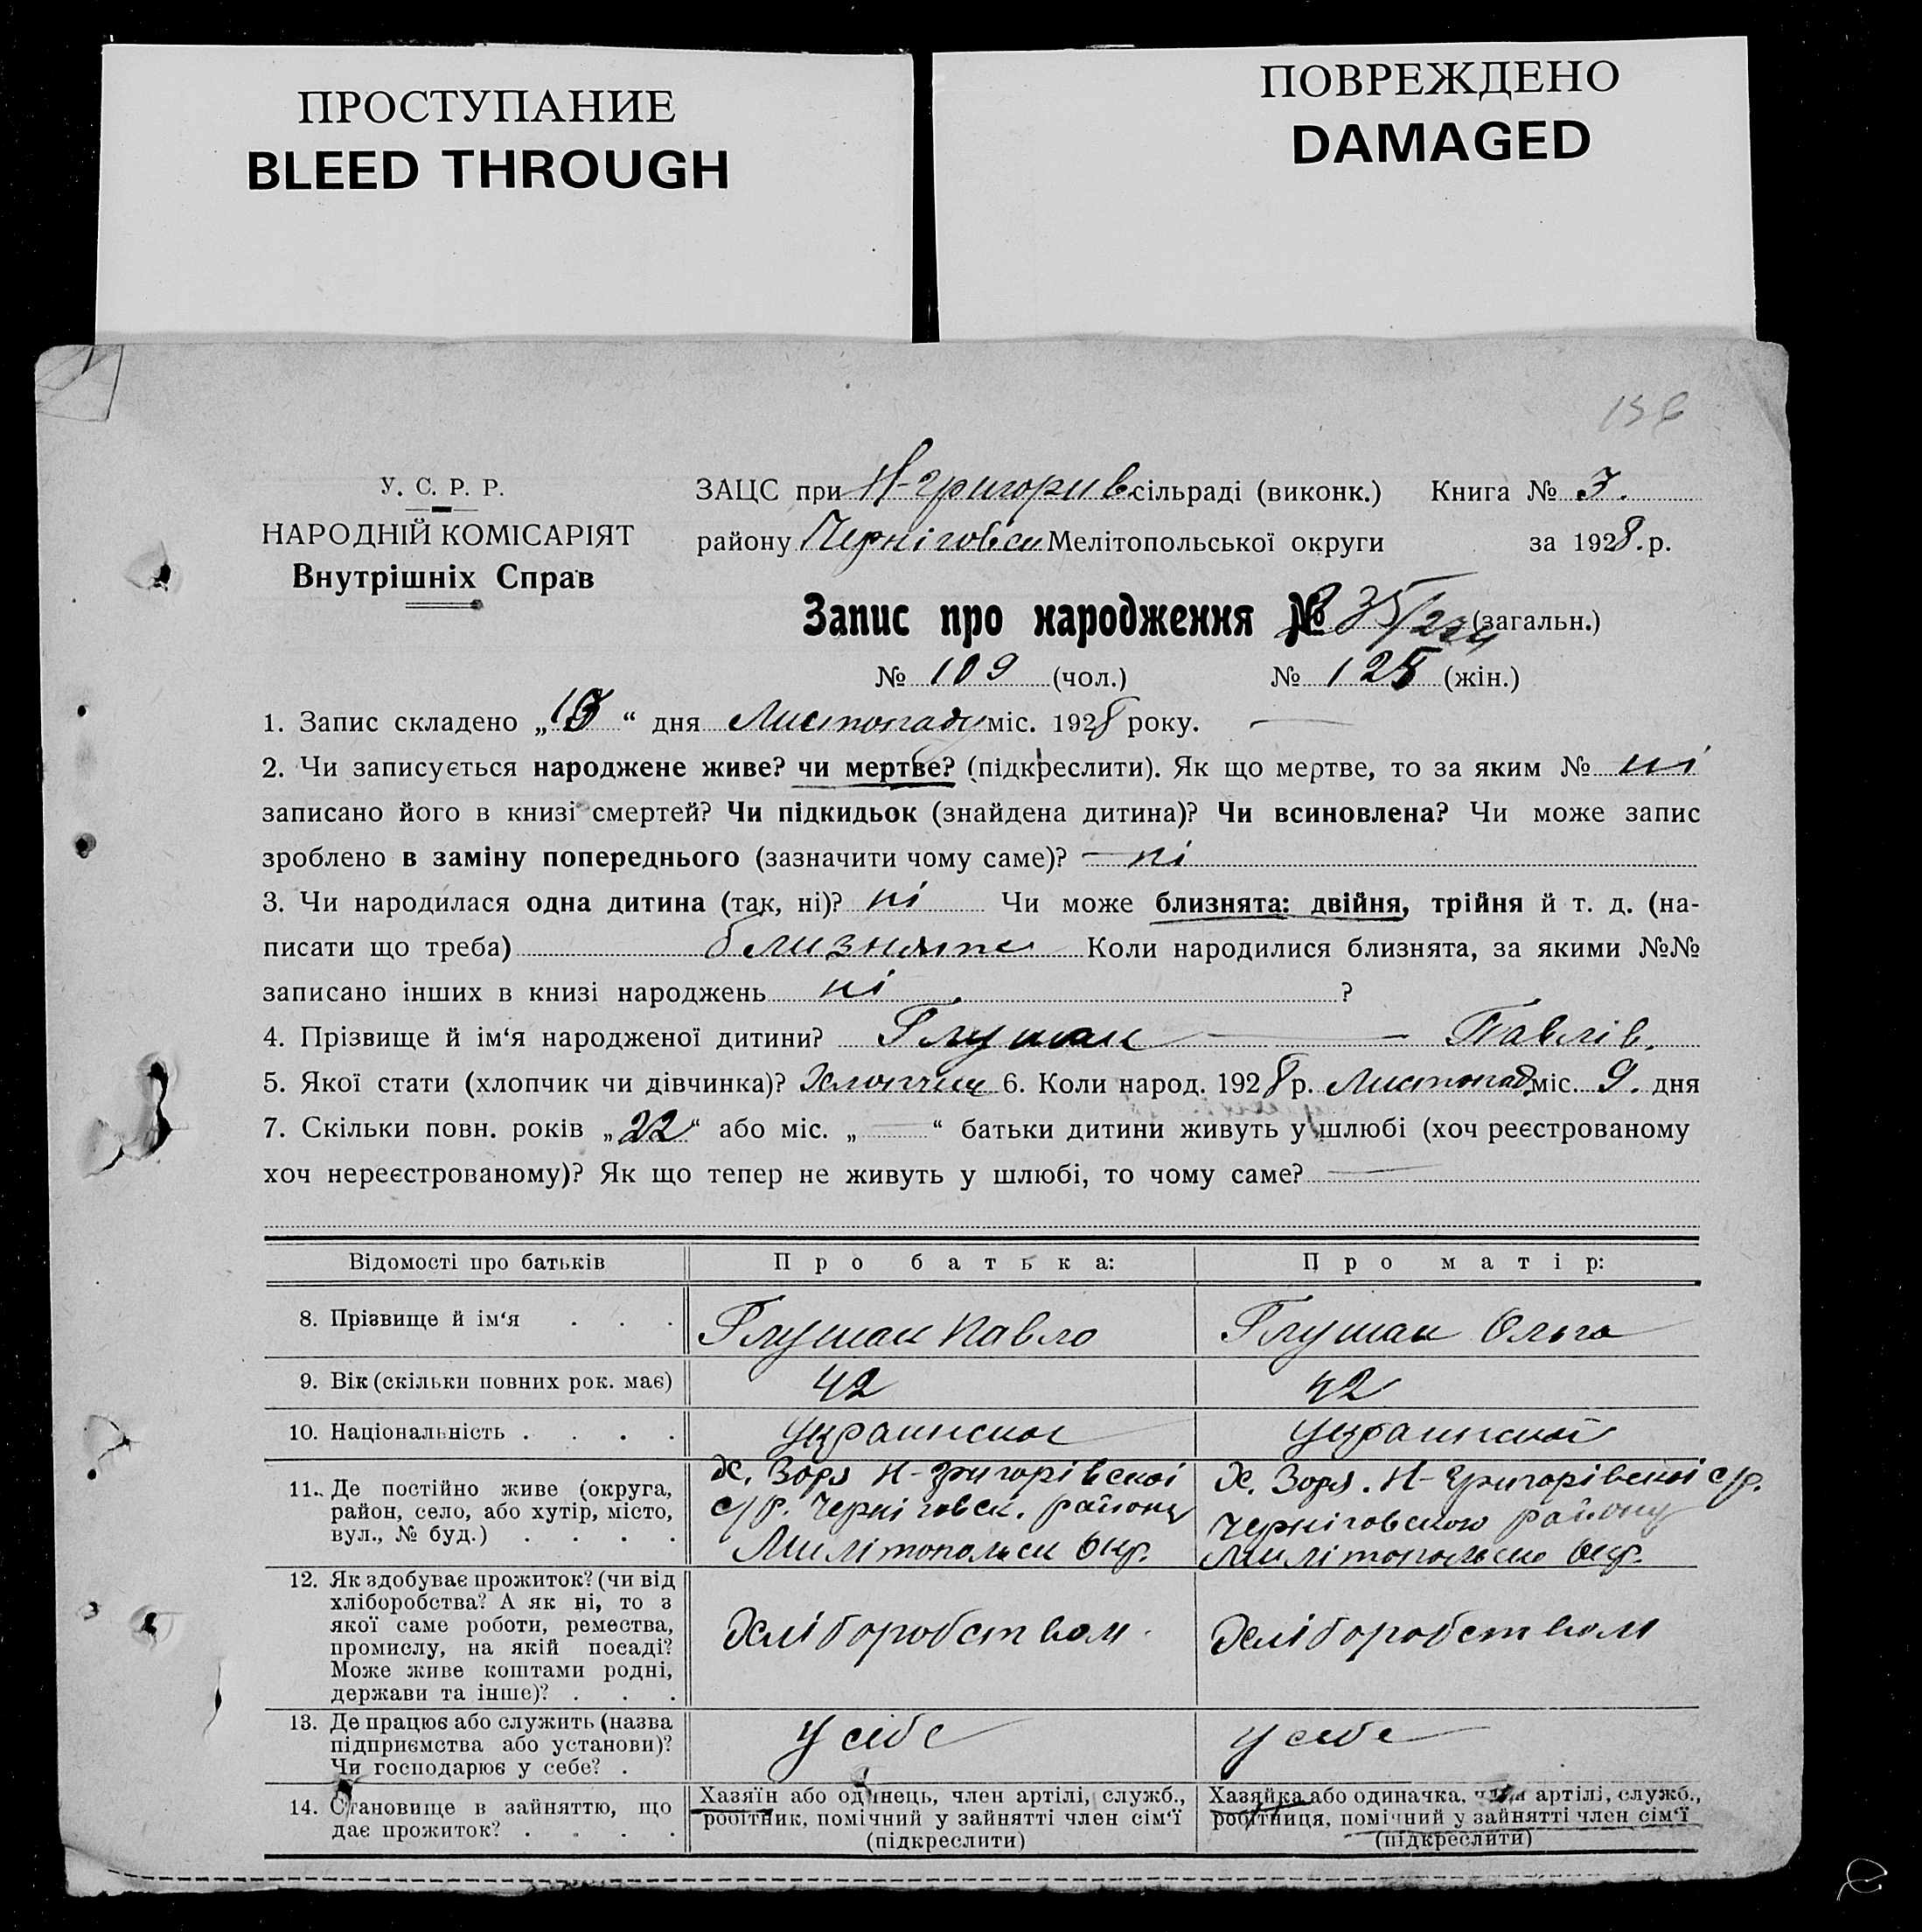 ПРОСТУПАНИЕ
BLEED THROUGH
ПОВРЕЖДЕНО
DAMAGED
136
У. С. Р. Р.
НАРОДНІЙ КОМІСАРІЯТ
Внутрішніх Справ
ЗАЦС при Н-григорив сільраді (виконк.) Книга № 3.
району Черніговськ Мелітопольської округи за 1928.р.
Запис про народження № (загальн.)
№ 109 (чол.) № 125 (жін.)
1. Запис складено „13“ дня Листопаду міс. 1928 року.
2. Чи записується народжене живе? чи мертве? (підкреслити). Як що мертве, то за яким № ні
записано його в книзі смертей? Чи підкидьок (знайдена дитина)? Чи всиновлена? Чи може запис
зроблено в заміну попереднього (зазначити чому саме)? — ні
3. Чи народилася одна дитина (так, ні)? ні Чи може близнята: двійня, трійня й т. д. (на-
писати що треба) близнята Коли народилися близнята, за якими №№
записано інших в книзі народжень ні ?
4. Прізвище й ім‘я народженої дитини? Глушак — Павлів.
5. Якої стати (хлопчик чи дівчинка)? Хлопчик 6. Коли народ. 1928 р. Листопад міс. 9. дня
7. Скільки повн. років „22“ або міс. „—“ батьки дитини живуть у шлюбі (хоч реєстрованому
хоч нереєстрованому)? Як що тепер не живуть у шлюбі, то чому саме? —
Відомості про батьків Про батька: Про матір:
8. Прізвище й ім‘я . . . Глушак Павло Глушак Ольга
9. Вік (скільки повних рок. має) 42 42
10. Національність . . . . Украинскої Украинскої
11. Де постійно живе (округа,
район, село, або хутір, місто,
вул., № буд.) . . . .
Х. Зоря Н-григорівскої
с/р. Черніговск. району
Милітопольск Окр.
Х. Зоря. Н-Григорівскої с/р.
Чернiговского району
Милітопольско Окр.
12. Як здобуває прожиток? (чи від
хліборобства? А як ні, то з
якої саме роботи, ремества,
промислу, на якій посаді?
Може живе коштами родні,
держави та інше)? . . .
Хліборобством. Хліборобством
13. Де працює або служить (назва
підприємства або установи)?
Чи господарює у себе? .
У себе У себе
14. Становище в зайняттю, що
дає прожиток? . . . .
Хазяїн або одинець, член артілі, служб.,
робітник, помічний у зайнятті член сім‘ї
(підкреслити)
Хазяйка або одиначка, член артілі, служб.,
робітниця, помічний у зайнятті член сім‘ї
(підкреслити)